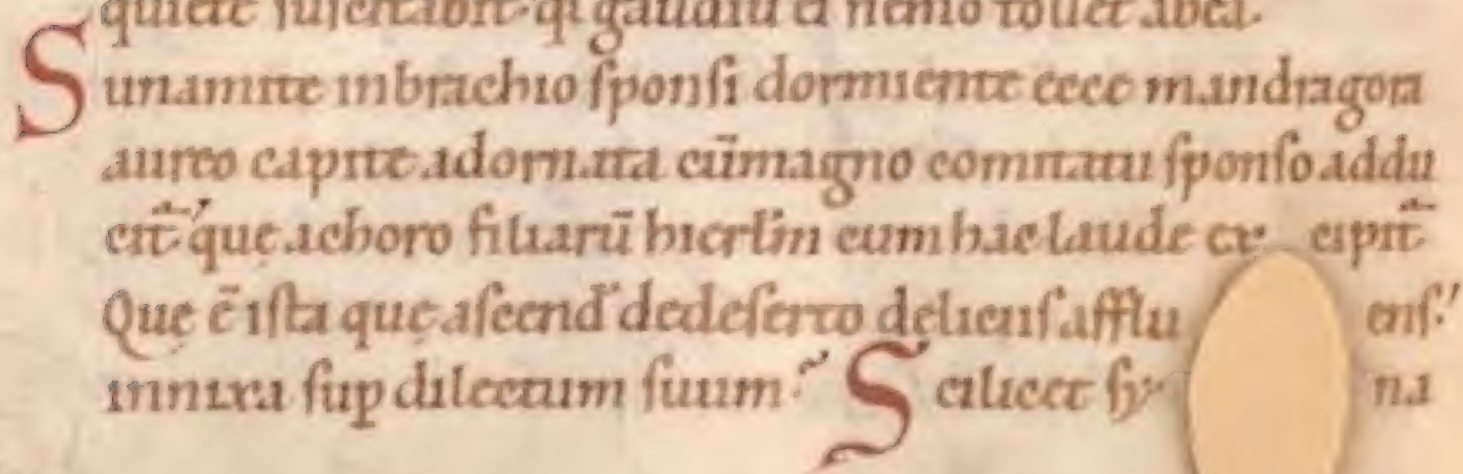 quiete suscitabit. q gaudiū ei nemo tollet ab ea.
Sunamite inbrachio sponsi dormiente ecce mandragora
aureo capite adornata cū magno comitatu sponso addu
cit᷑. quę a choro filiarū hierl̄m cum hac laude ex cipit᷑
Quę ē ista quę ascend̄ de deserto deliciens affluens?
innixa sup dilectum suum. Scilicet sy na